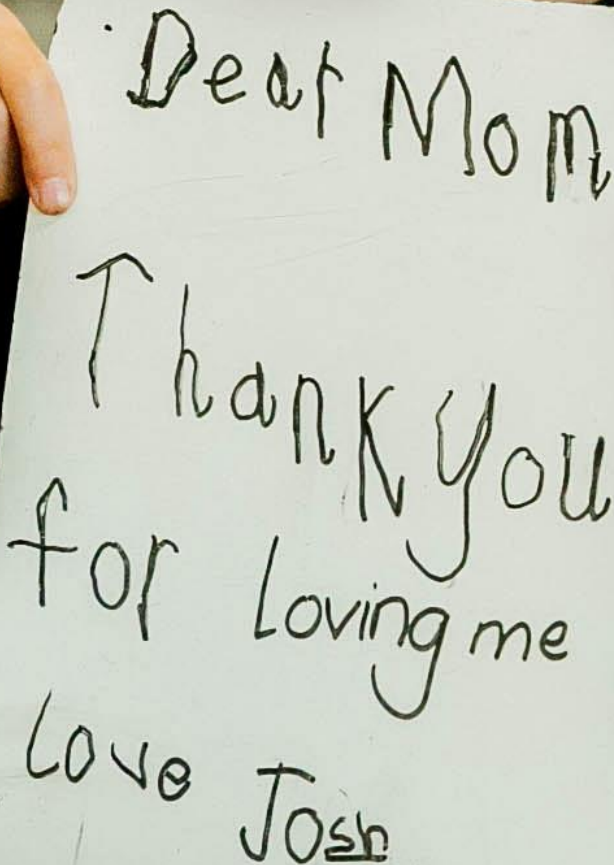 Dear Mom
Thank you
for loving me
love Josh